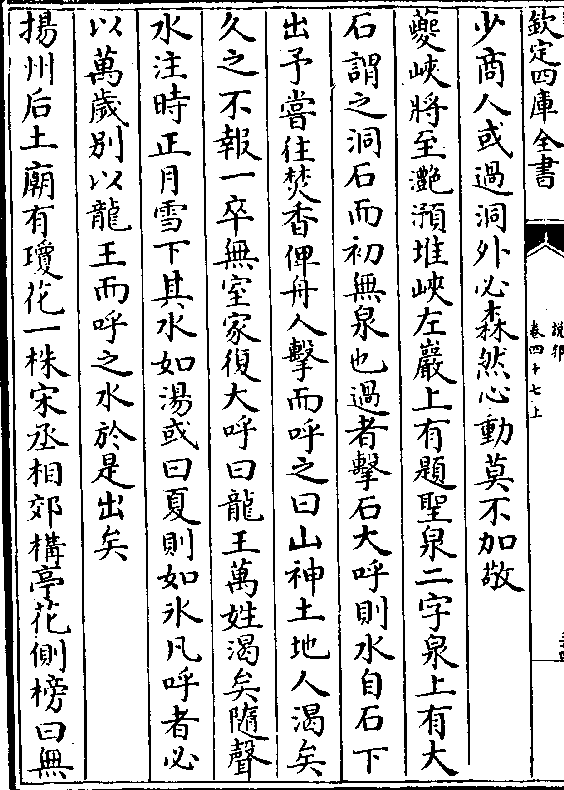 欽定四庫全書
說郛
卷四十七上
少商人或過洞外必森然心動莫不加敬
夔峽將至灔澦堆峽左巖上有題聖泉二字泉上有大
石謂之洞石而初無泉也過者擊石大呼則水自石下
出予嘗往焚香俾舟人擊而呼之曰山神土地人渴矣
久之不報一卒無室家復大呼曰龍王萬姓渴矣隨聲
水注時正月雪下其水如湯或曰夏則如氷凡呼者必
以萬歲别以龍王而呼之水於是出矣
揚州后土廟有瓊花一株宋丞相郊構亭花側榜曰無